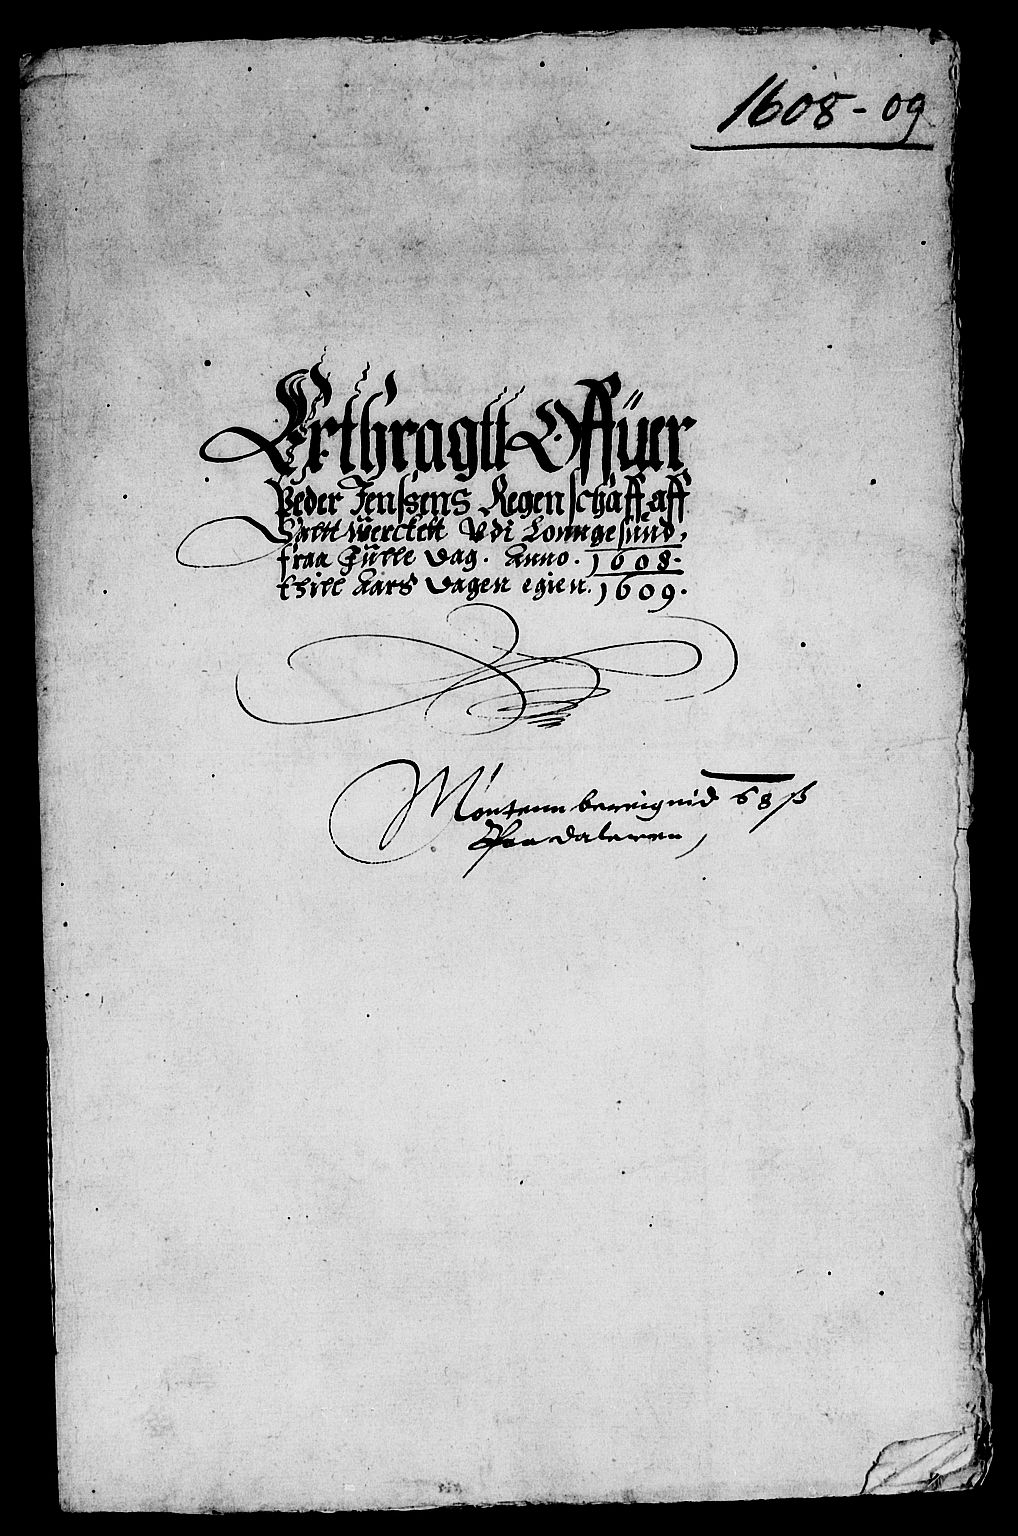 1608-09
Exthragtt Offüer
Peder Jenssens Regenschaff aff
Saltt werckett Udi Lonngesund,
fraa Jülle dag. Anno. 1608.
thill Aars dagen egien. 1609.
Møntenn bereignid 68 ß
Paa daleren,